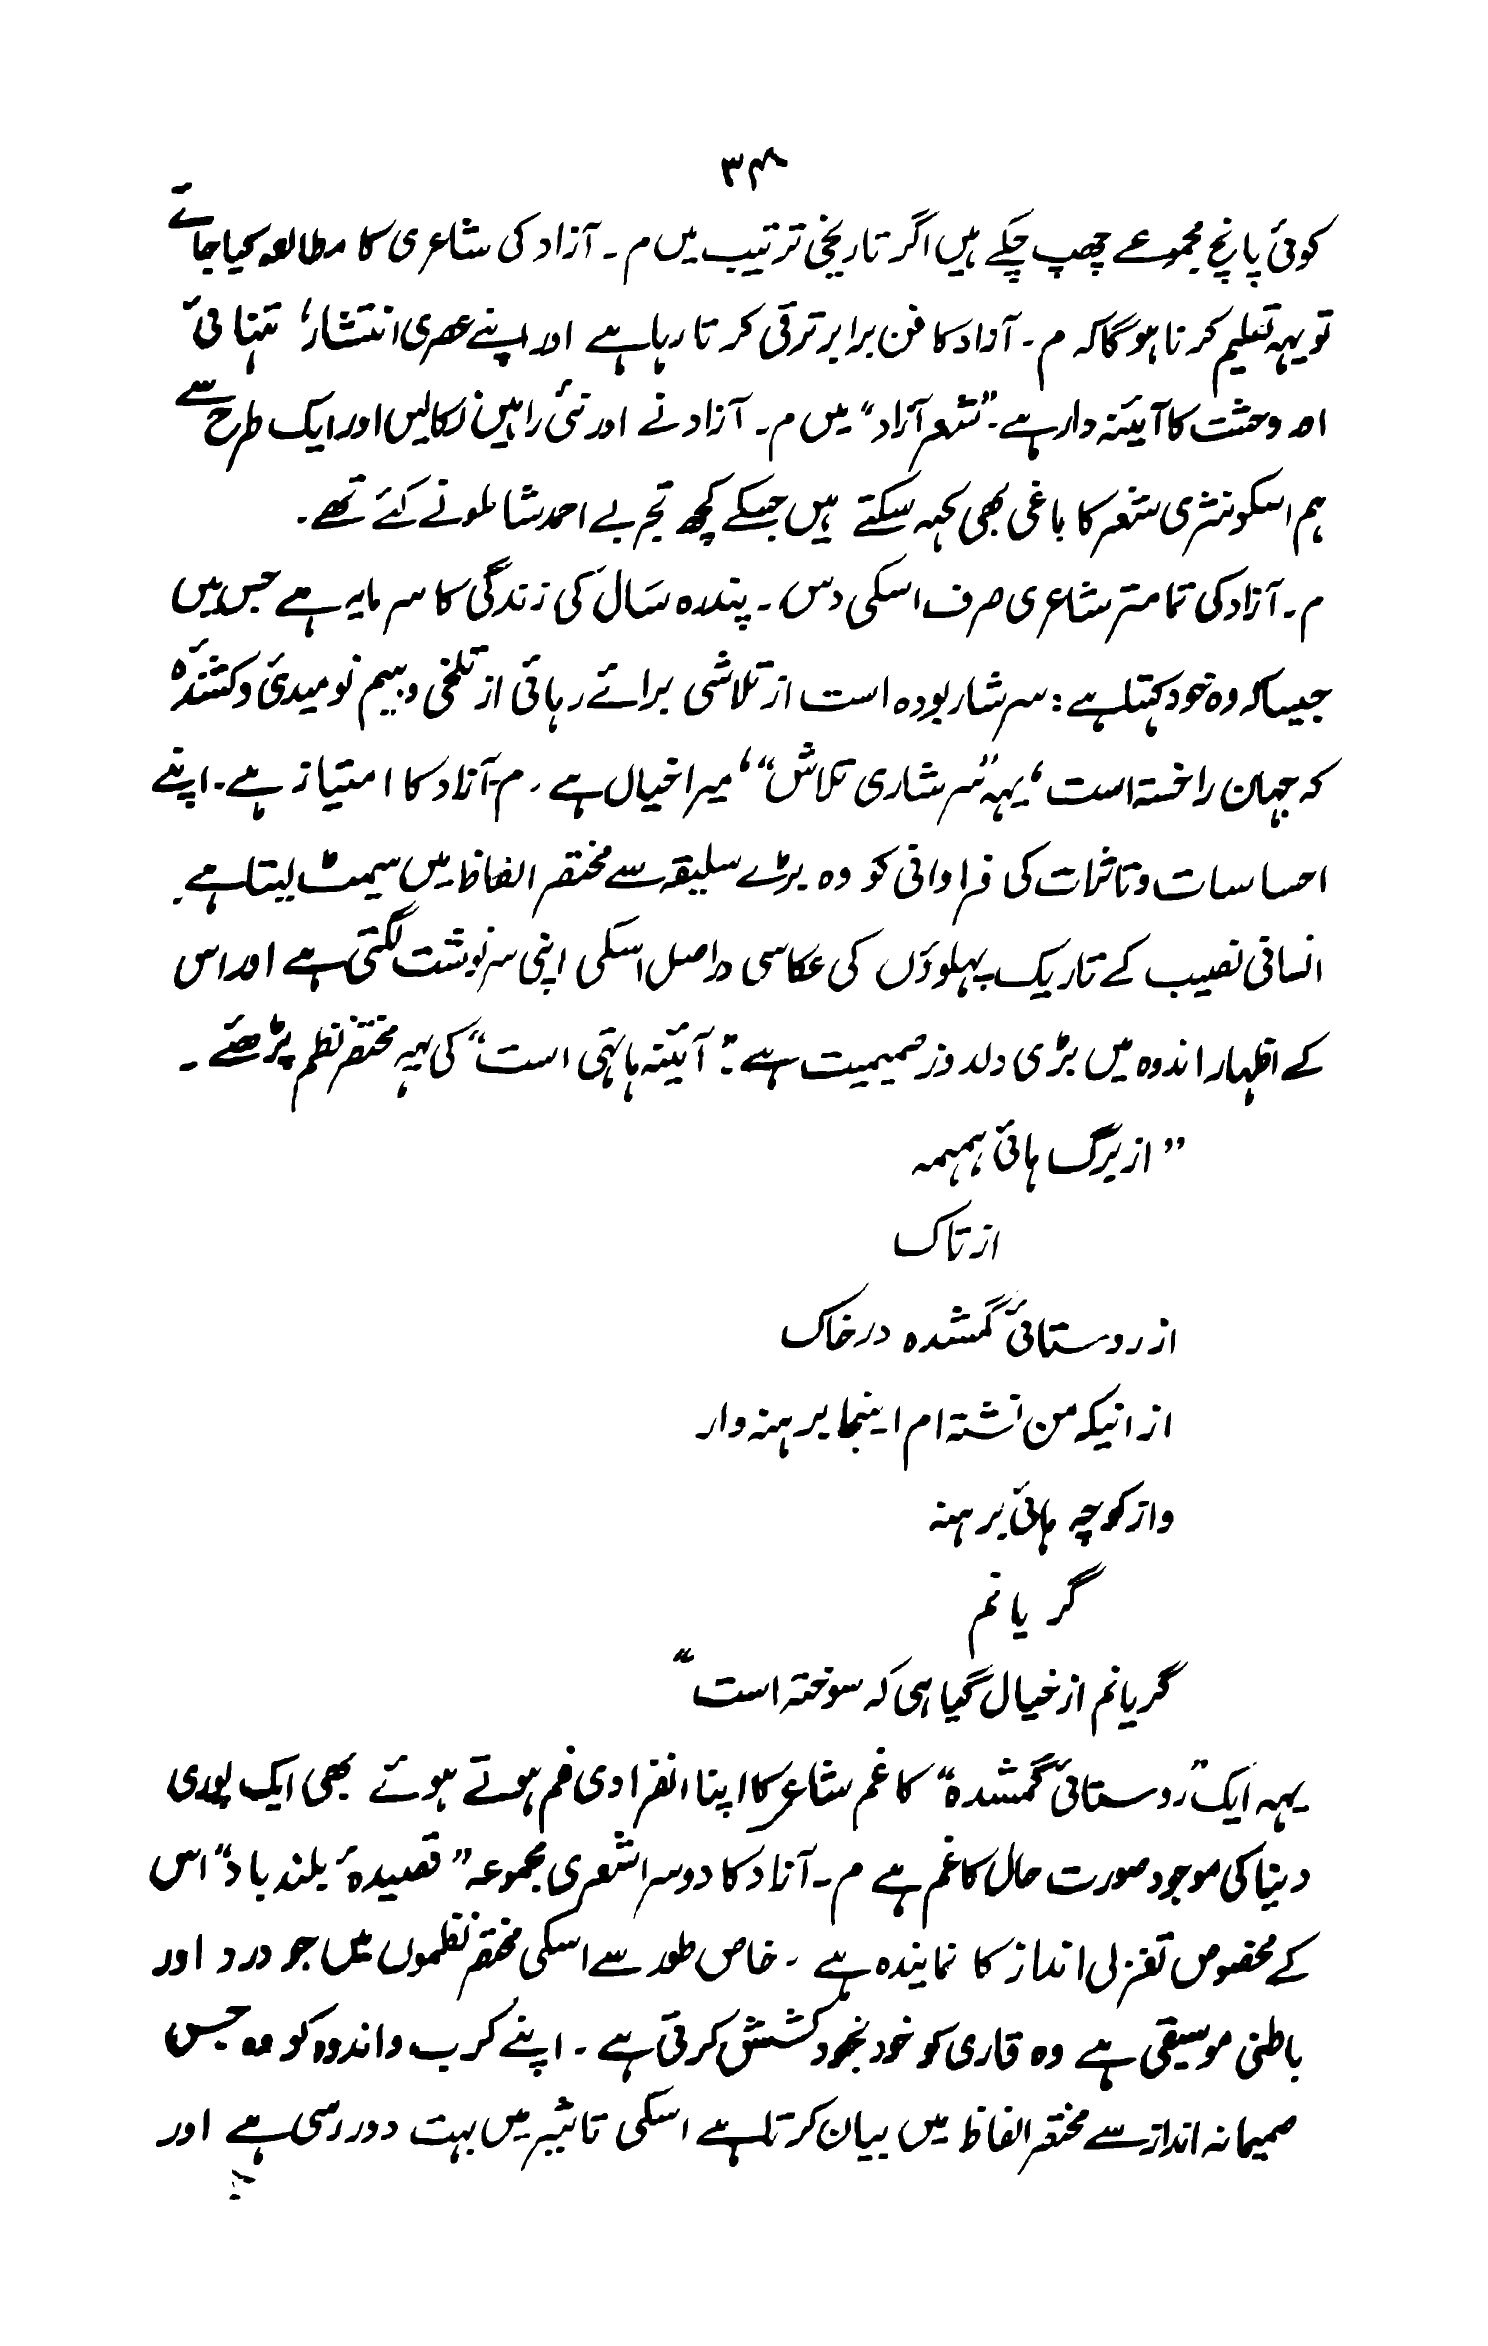 ۳۴۸
کوئی پانچ مجموعے چھپ چکے ہیں اگر تاریخی ترتیب میں م۔ آزاد کی شاعری کا مطالعہ کیا جائے
تو یہہ تسلیم کرنا ہوگا کہ م۔ آزاد کا فن برابر ترقی کرتا رہا ہے اور اپنے عصری انتشار، تنہائی
اور وحشت کا آئینہ دار ہے۔ "شعر آزاد" میں م۔ آزاد نے اور نئی راہیں نکالیں اور ایک طرح سے
ہم اسکو نثری شعر کا باغی بھی کہہ سکتے ہیں جسکے کچھ تجربے احمد شاملو نے کئے تھے۔
م۔ آزاد کی تمامتر شاعری صرف اسکی دس۔ پندرہ سال کی زندگی کا سرمایہ ہے جس میں
جیسا کہ وہ خود کہتا ہے : سرشار بودہ است از تلاشی برائے رہائی از تلخی و بیم نومیدی و کشندۂ
کہ جہان را خستہ است، یہہ "سرشاری تلاش"، میرا خیال ہے۔ م۔ آزاد کا امتیاز ہے۔ اپنے
احساسات و تاثرات کی فراوانی کو وہ بڑے سلیقہ سے مختصر الفاظ میں سمیٹ لیتا ہے۔
انسانی نصیب کے تاریک پہلوؤں کی عکاسی دراصل اسکی اپنی سرنوشت لگتی ہے اور اس
کے اظہار اندوہ میں بڑی دلدوز صمیمیت ہے: "آئینہ ہا تہی است" کی یہہ مختصر نظم پڑھئے۔
"از برگ ہائی ہمہمہ
از تاک
از روستائی گمشدہ در خاک
از انیکہ من نشتہ ام اینجا برہنہ وار
و از کوچہ ہائی برہنہ
گریانم
گریانم از خیال گیاہی کہ سوختہ است"
یہہ ایک "روستائی گمشدہ" کا غم شاعر کا اپنا انفرادی غم ہوتے ہوئے بھی ایک پوری
دنیا کی موجود صورت حال کا غم ہے م۔ آزاد کا دوسرا شعری مجموعہ "قصیدۂ بلند باد" اس
کے مخصوص تغزلی انداز کا نمایندہ ہے۔ خاص طور سے اسکی مختصر نظموں میں جو درد اور
باطنی موسیقی ہے وہ قاری کو خود بخود کشش کرتی ہے۔ اپنے کرب و اندوہ کو وہ جس
صمیمانہ انداز سے مختصر الفاظ میں بیان کرتا ہے اسکی تاثیر میں بہت دور رسی ہے اور